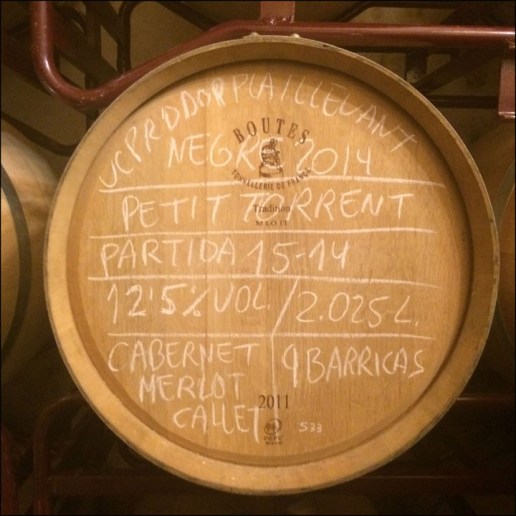 VCPRD DOP PLA I LLEVANT
BOUTES
NEGRE 2014
TONNELLERIE DE FRANCE
PETIT TORRENT
Tradition
PARTIDA 15-14
12'5% VOL. / 2.025-L.
CABERNET 9 BARRICAS
MERLOT
CALLET
2011
PEFC
533